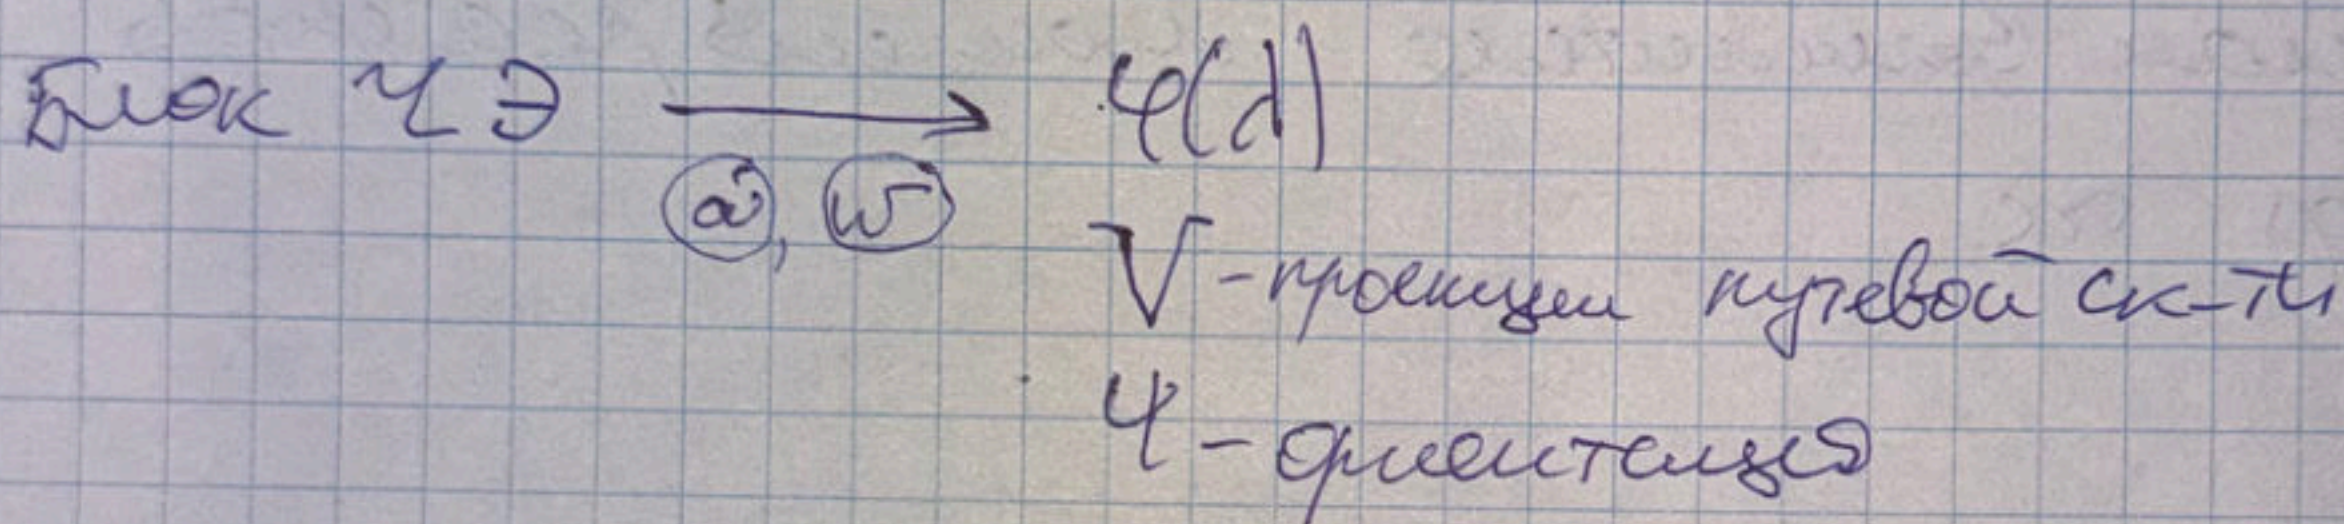 Блок ЧЭ → φ(λ)
a, ω
V - проекции путевой ск-ти
Ψ - ориентация